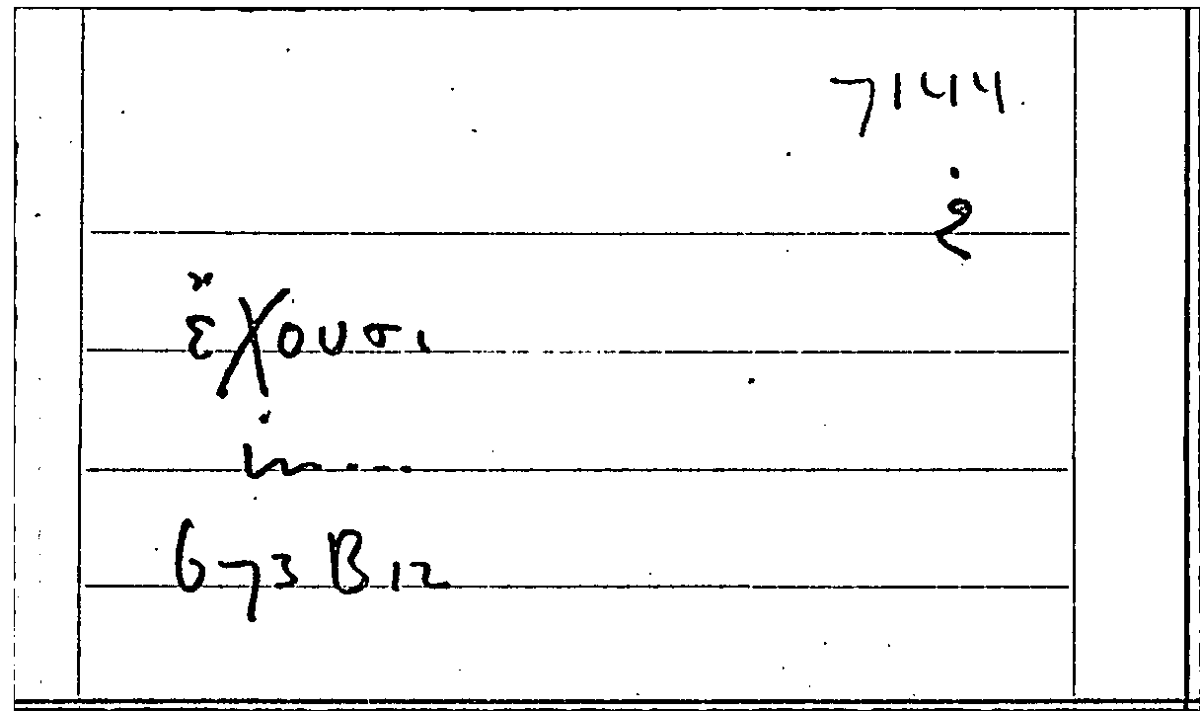 7144
ἔχουσι
673 B 12